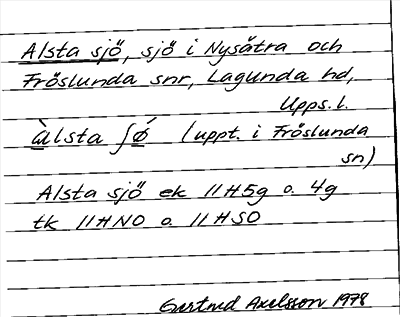 Alsta sjö, sjö i Nysätra och
Fröslunda snr, Lagunda hd,
Upps. l.
àlsta ʃǿ (uppt. i Fröslunda
sn)
Alsta sjö ek 11H5g o. 4g
tk 11HNO o. 11HSO
Gertrud Axelsson 1978